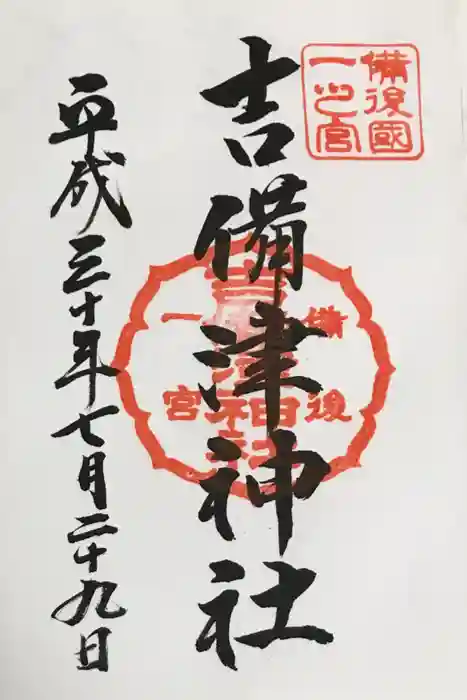 備後國
一之宮
吉備津神社
備後
一宮
吉備津神社
平成三十年七月二十九日